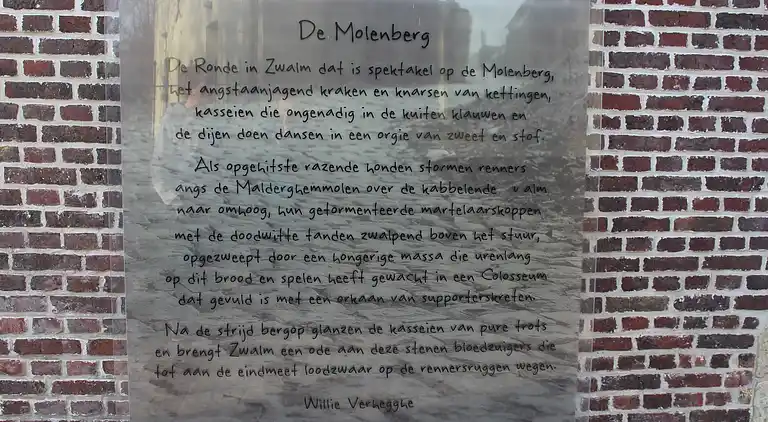 De Molenberg
De Ronde in Zwalm dat is spektakel op de Molenberg,
het angstaanjagend kraken en knarsen van kettingen,
kasseien die ongenadig in de kuiten klauwen en
de dijen doen dansen in een orgie van zweet en stof.
Als opgehitste razende honden stormen renners
angs de Malderghemmolen over de kabbelende
naar omhoog, hun getormenteerde martelaarskoppen
met de doodwitte tanden zwalpend boven het stuur,
opgezweept door een hongerige massa die urenlang
op dit brood en spelen heeft gewacht in een Colosseum
dat gevuld is met een orkaan van supporterskreten.
Na de strijd bergop glanzen de kasseien van pure trots
en brengt Zwalm een ode aan deze stenen bloedzuigers die
tot aan de eindmeet loodzwaar op de rennersruggen wegen.
Willie Verhegghe